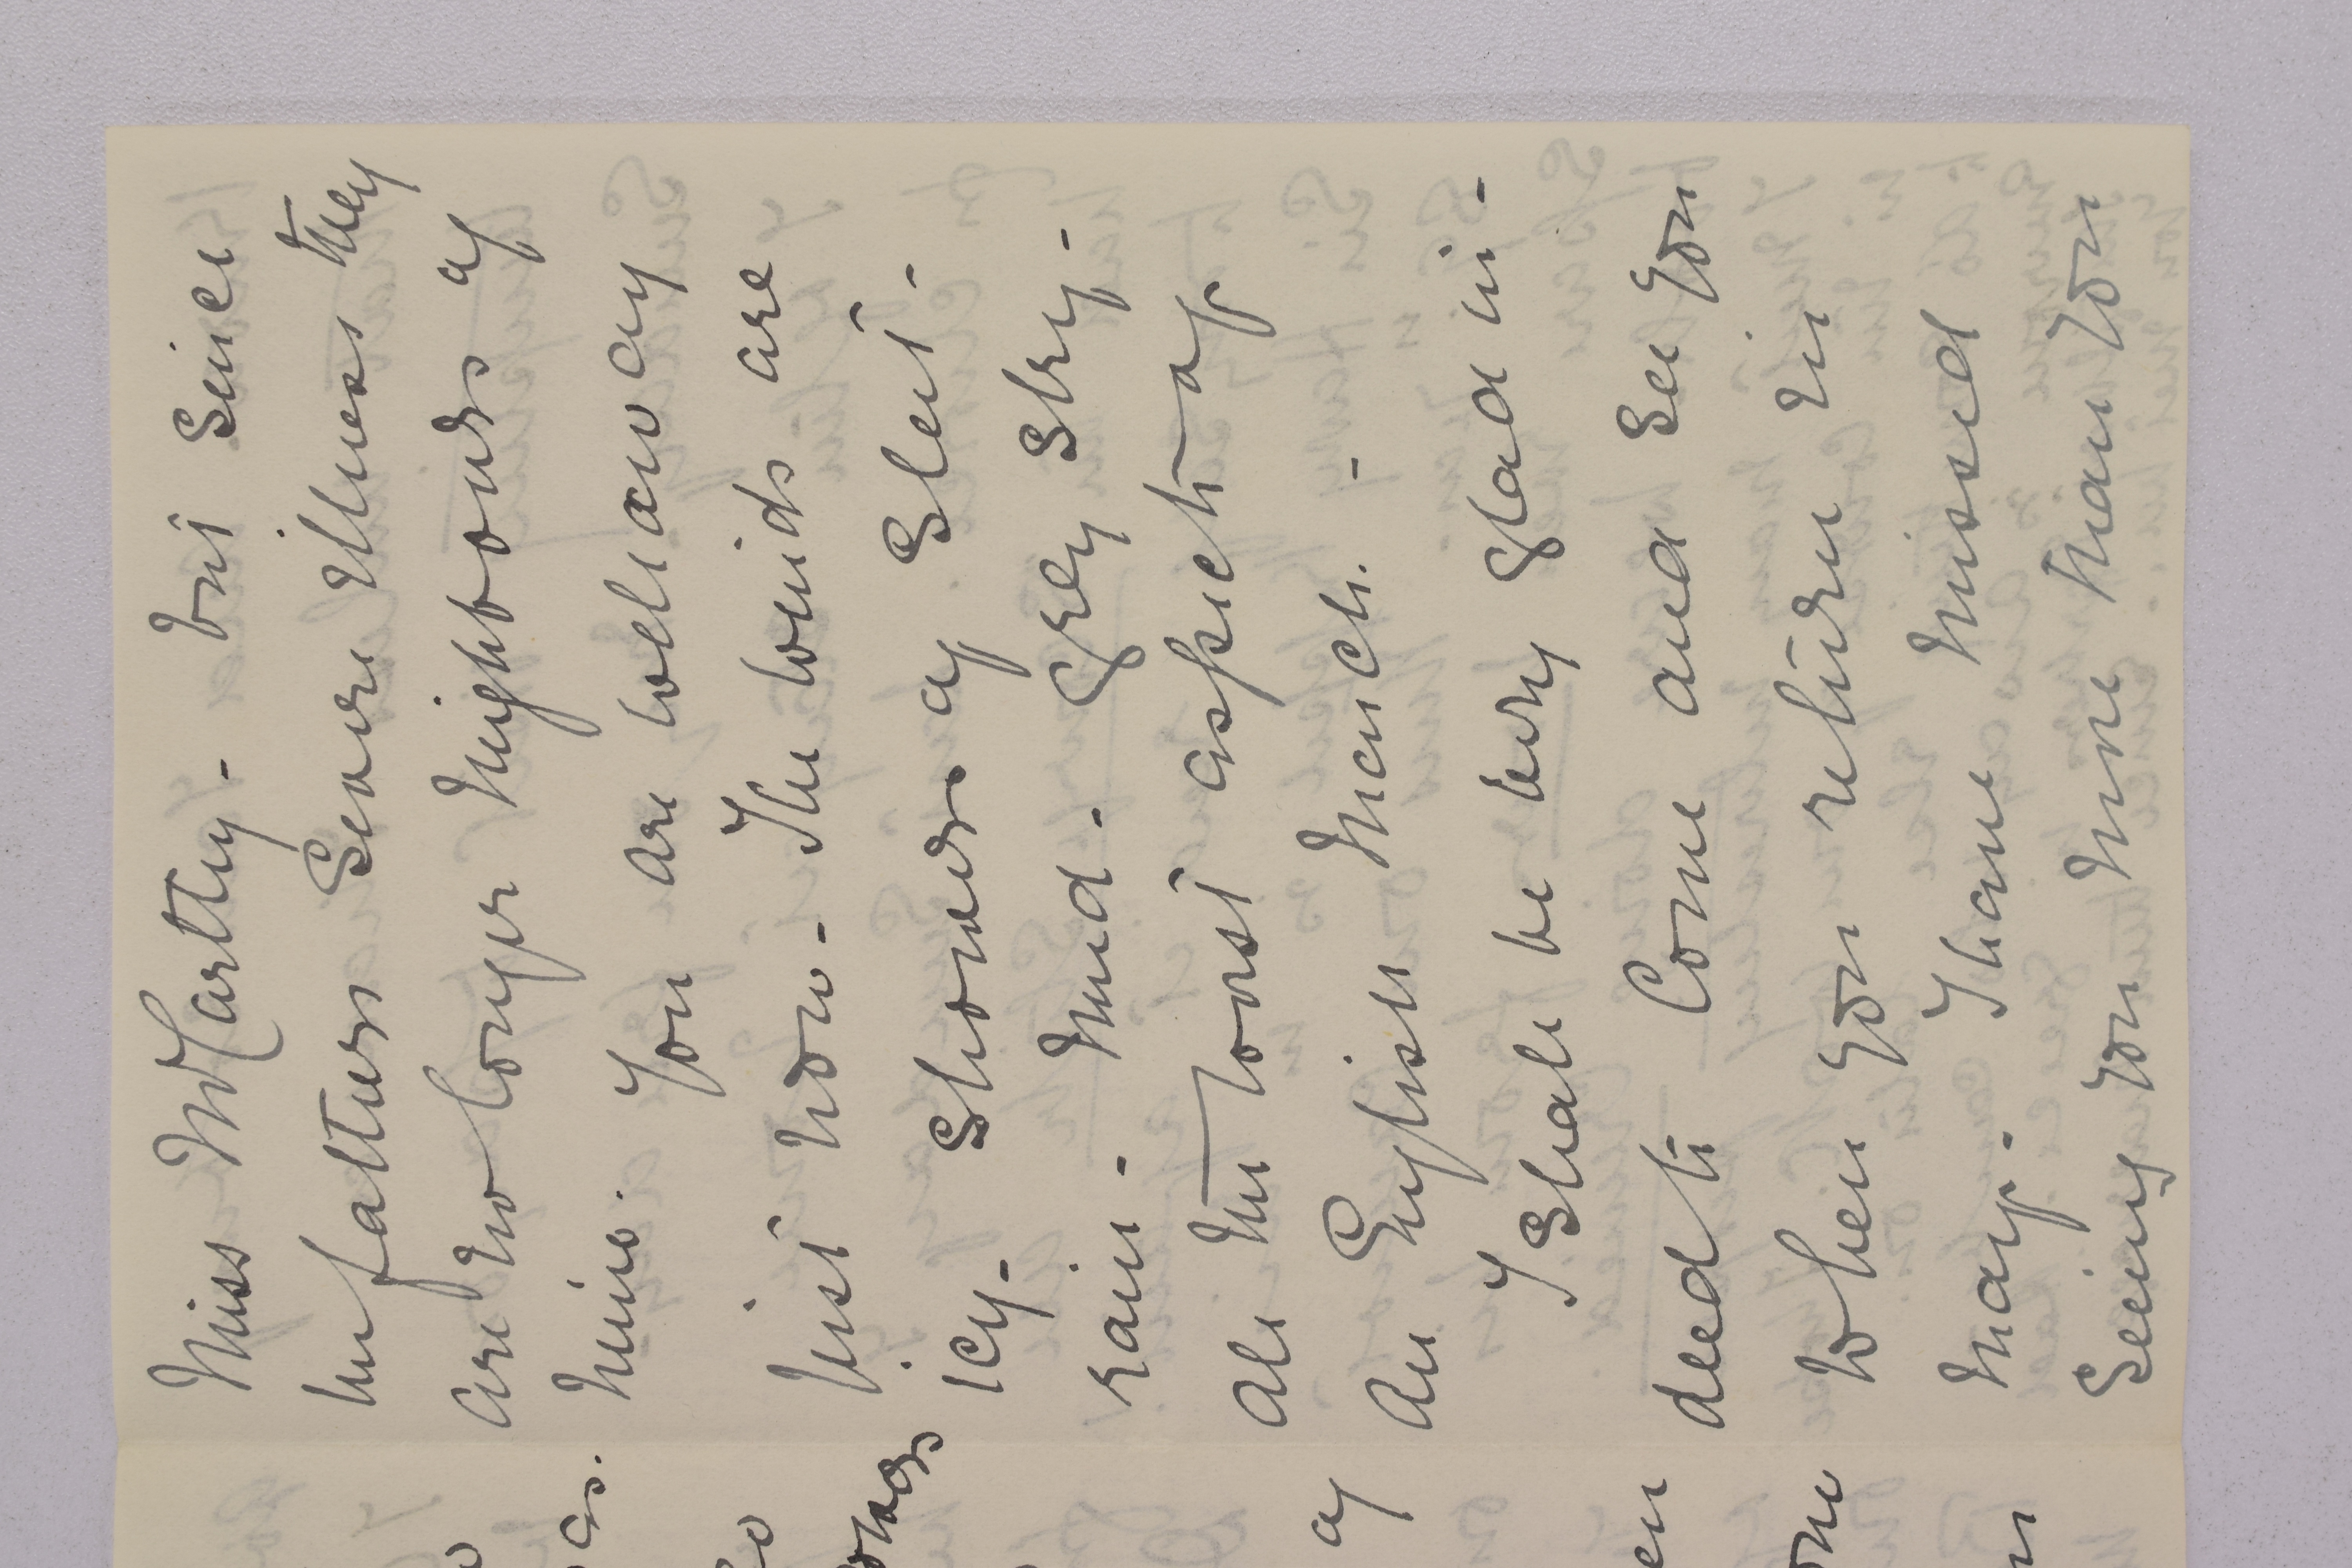 Miss McCarthy - but since
her fathers severe illness they
are no longer neighbours of
mine. You are well away
just now - The winds are
icy - showers of sleet -
rain - mud - grey sky -
all the worst aspects of
an English March. -
I shall be very glad in-
deed to come and see you
when you return in
May - I have missed
seeing you more than you